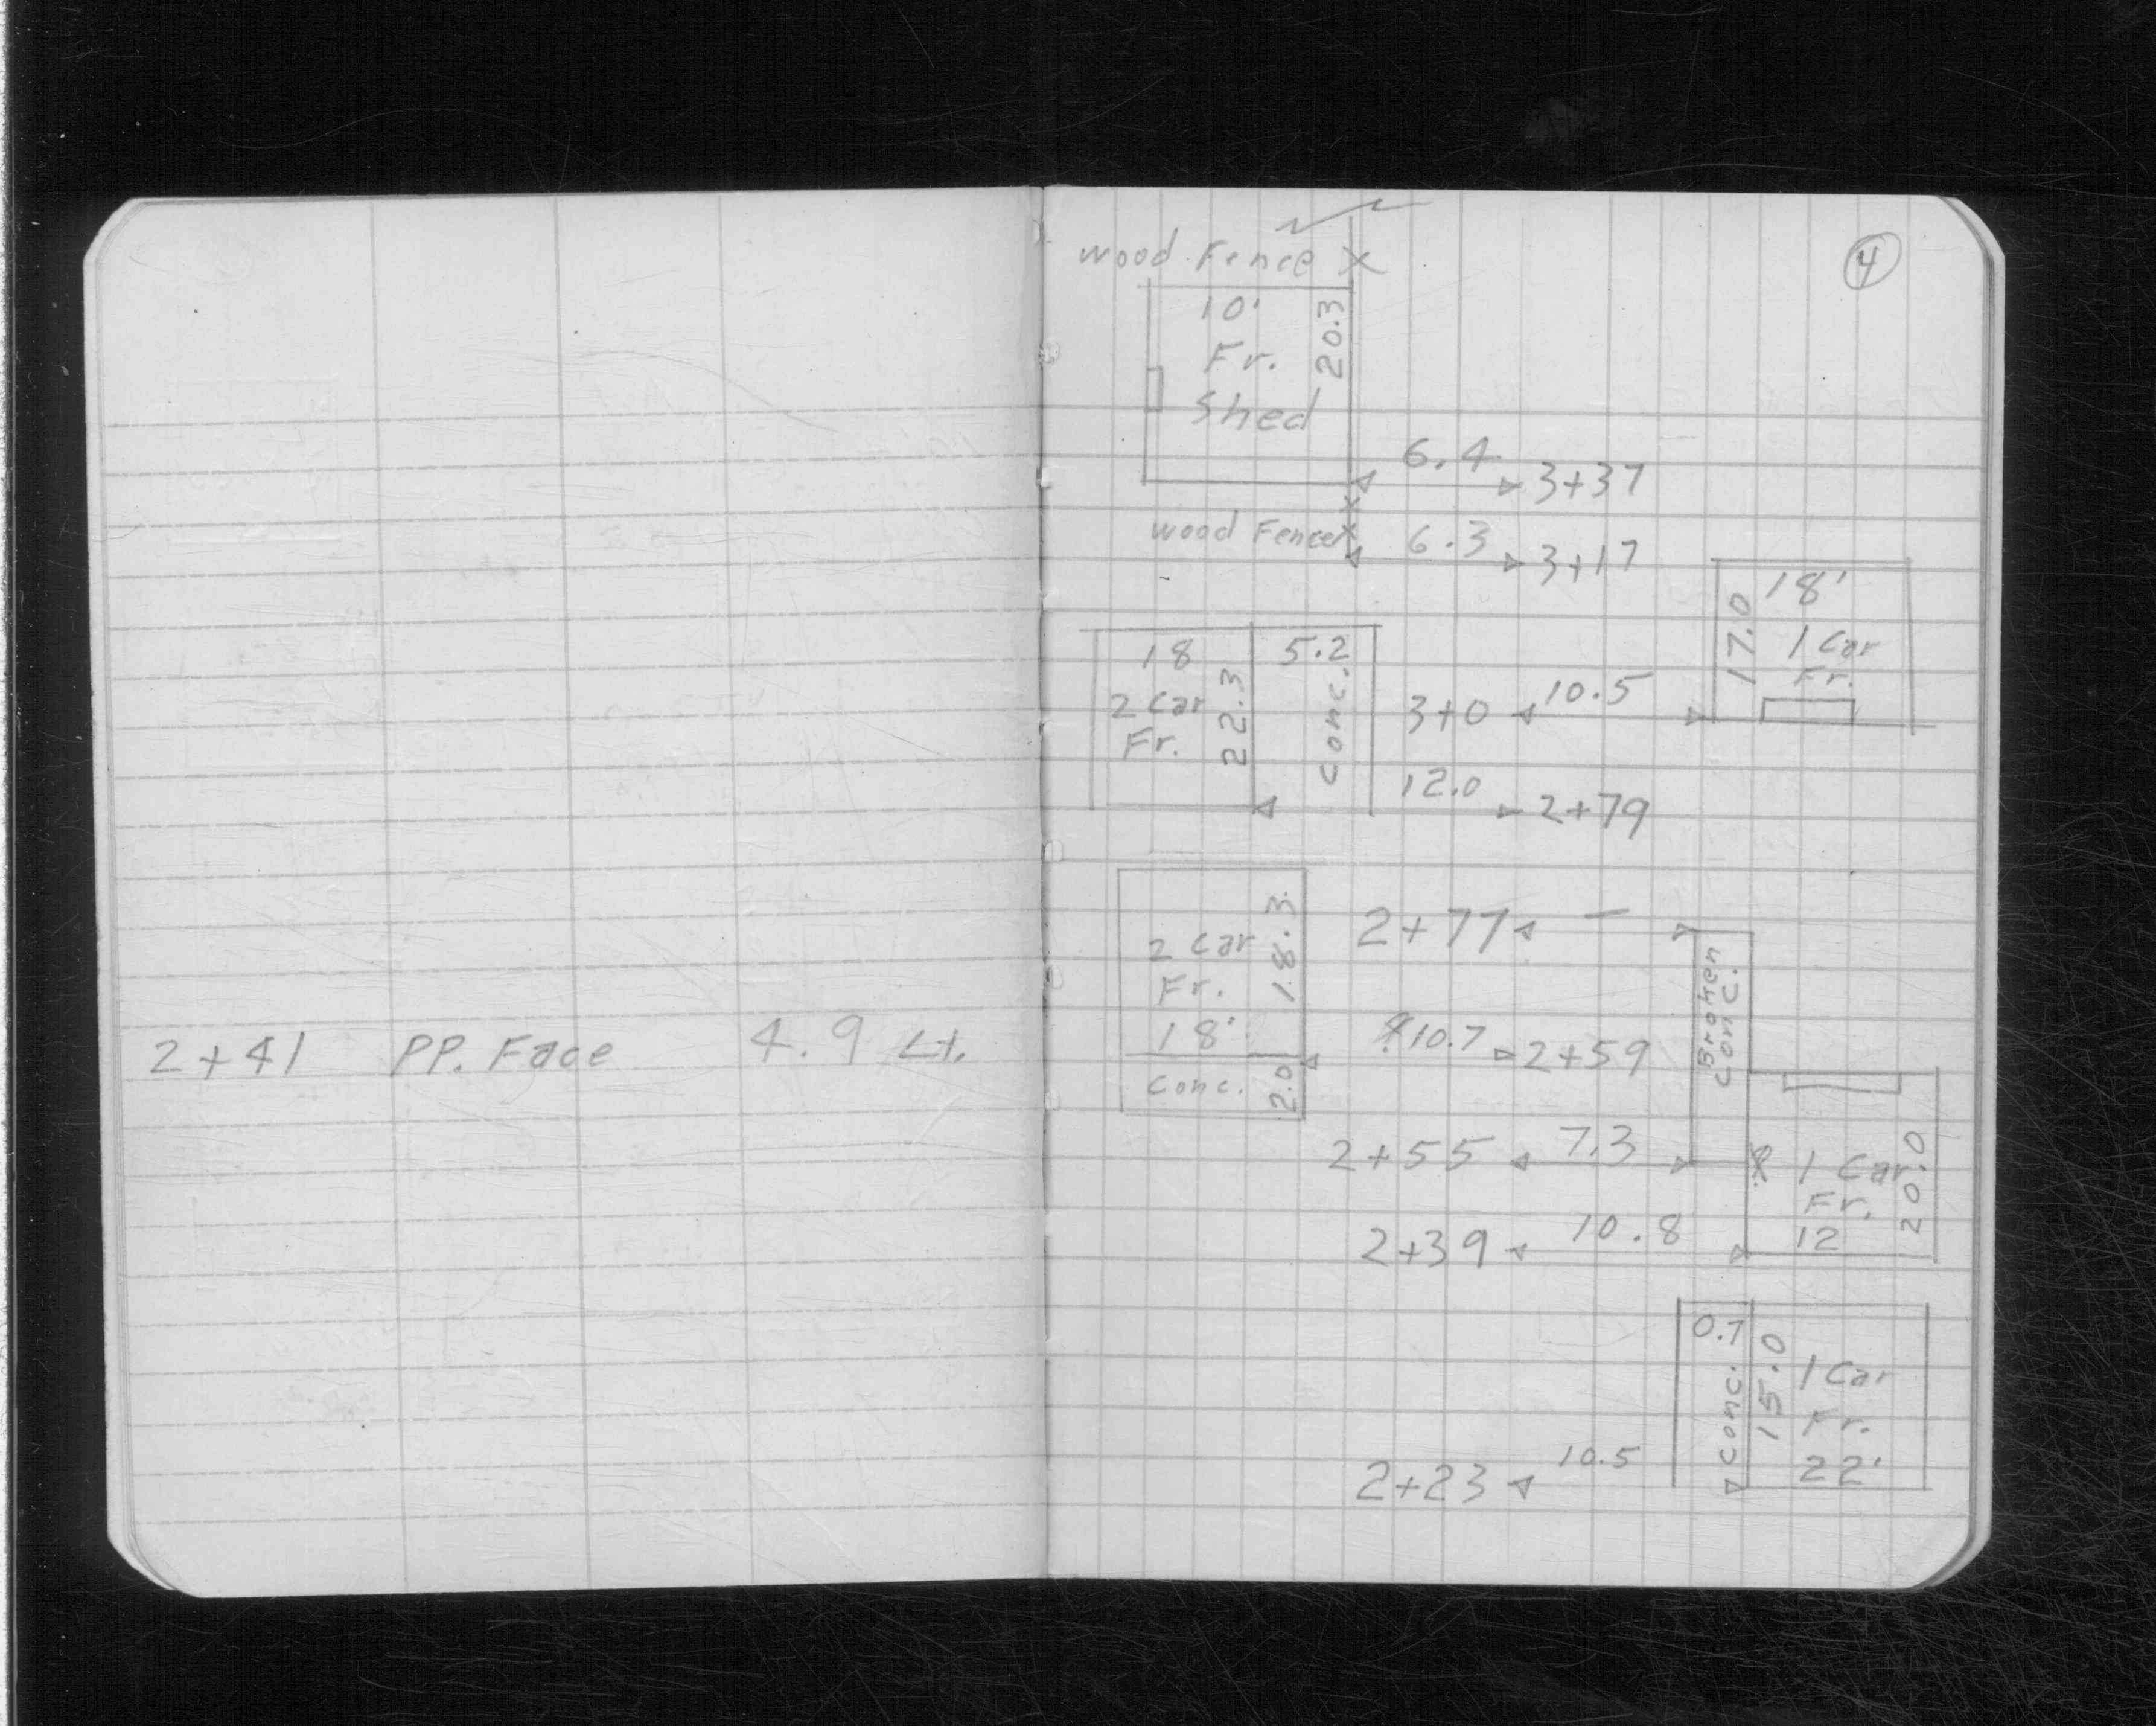 2+41 PP. Face 4.9 Lt.
4
wood Fence X
10'
Fr.
Shed
20.3
6.4
3+37
wood Fence
6.3
3+17
18'
17.0
1 Car
Fr.
18
2 Car
Fr.
22.3
5.2
Conc.
3+0 10.5
12.0
2+79
2 Car
Fr.
18'
18.3
Conc.
2.0
2+77 —
Broken
Conc.
10.7 2+59
2+55 7.3
1 Car
Fr.
12
20.0
2+39 10.8
0.7
Conc.
15.0
1 Car
Fr.
22'
2+23 10.5